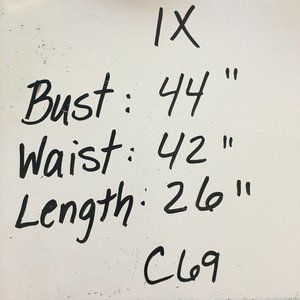 1X
Bust: 44"
Waist: 42"
Length: 26"
C69